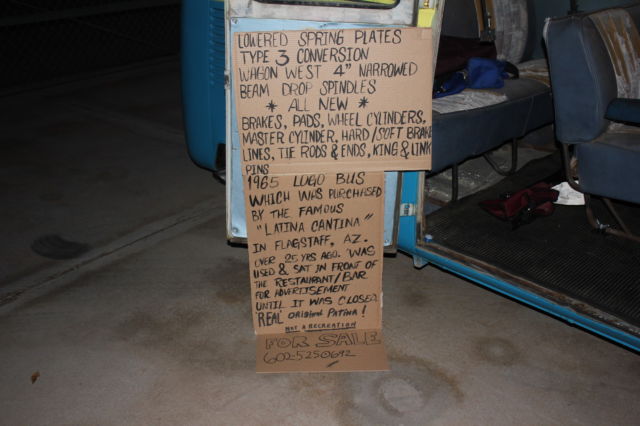 LOWERED SPRING PLATES
TYPE 3 CONVERSION
WAGON WEST 4" NARROWED
BEAM DROP SPINDLES
* ALL NEW *
BRAKES, PADS, WHEEL CYLINDERS,
MASTER CYLINDER, HARD/SOFT BRAKE
LINES, TIE RODS & ENDS, KING & LINK
PINS
1965 LOGO BUS
WHICH WAS PURCHASED
BY THE FAMOUS
"LATINA CANTINA"
IN FLAGSTAFF, AZ.
OVER 25 YRS AGO. WAS
USED & SAT IN FRONT OF
THE RESTAURANT/BAR
FOR ADVERTISEMENT
UNTIL IT WAS CLOSED.
"REAL" ORIGINAL PATINA!
NOT A RECREATION
FOR SALE
602-5250692